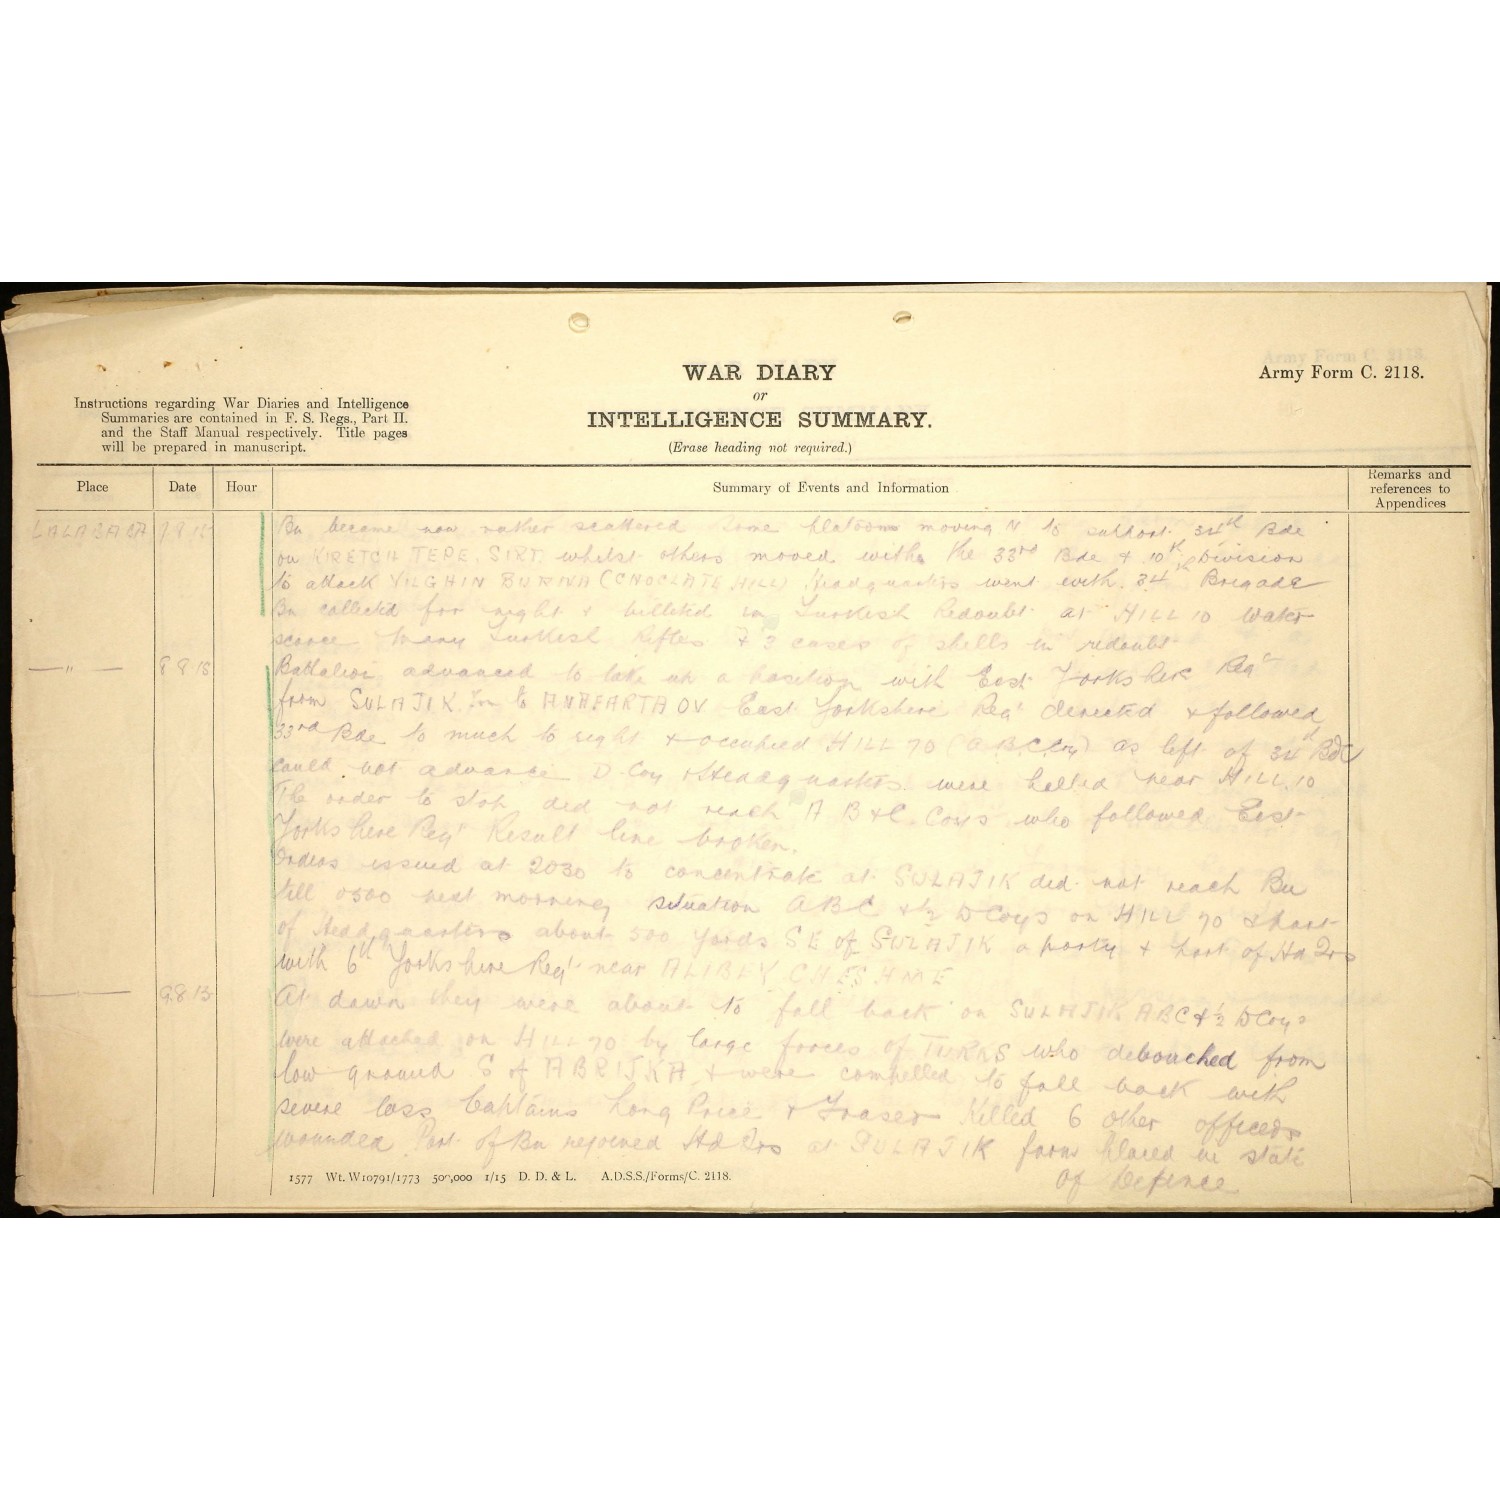 Army Form C. 2118.
WAR DIARY
or
INTELLIGENCE SUMMARY.
(Erase heading not required.)
Instructions regarding War Diaries and Intelligence
Summaries are contained in F. S. Regs., Part II.
and the Staff Manual respectively. Title pages
will be prepared in manuscript.
Place Date Hour Summary of Events and Information Remarks and references to Appendices
LALABABA 7 8 15 Bn became now rather scattered some platoons moving N to support 34th Bde
on KIRETCH TEPE SIRT whilst others moved with the 33rd Bde & 10th Division
to attack YILGHIN BURINA (CHOCLATE HILL) Headquarters went with 34th Brigade
Bn collected for night & billeted in Turkish Redoubt at HILL 10 Water
scarce Many Turkish Rifles & 3 cases of shells in redoubt
— " — 8 8 15 Battalion advanced to take up a position with East Yorkshire Regt
from SULAJIK to ANAFARTA OV East Yorkshire Regt directed & followed
33rd Bde to much to right & occupied HILL 70 (A.B.C. Coy) as left of 34th Bde
could not advance D Coy & Headquarters were halted near HILL 10
The order to stop did not reach A B & C Coys who followed East
Yorkshire Regt Result line broken.
Orders issued at 2030 to concentrate at SULAJIK did not reach Bn
till 0300 next morning situation ABC & ½ D Coys on HILL 70 & part
of Headquarters about 500 yards SE of SULAJIK a party & part of Hd Qrs
with 6th Yorkshire Regt near ALIBEY CHESHME
9.8.15 At dawn they were about to fall back on SULAJIK ABC & ½ D Coys
were attacked on HILL 70 by large forces of TURKS who debouched from
low ground S of ABRIJKA & were compelled to fall back with
severe loss Captains Long Price & Fraser Killed 6 other officers
wounded Part of Bn rejoined Hd Qrs at SULAJIK farm placed in state
of Defence
1577 Wt. W10791/1773 500,000 1/15 D. D. & L. A.D.S.S./Forms/C. 2118.